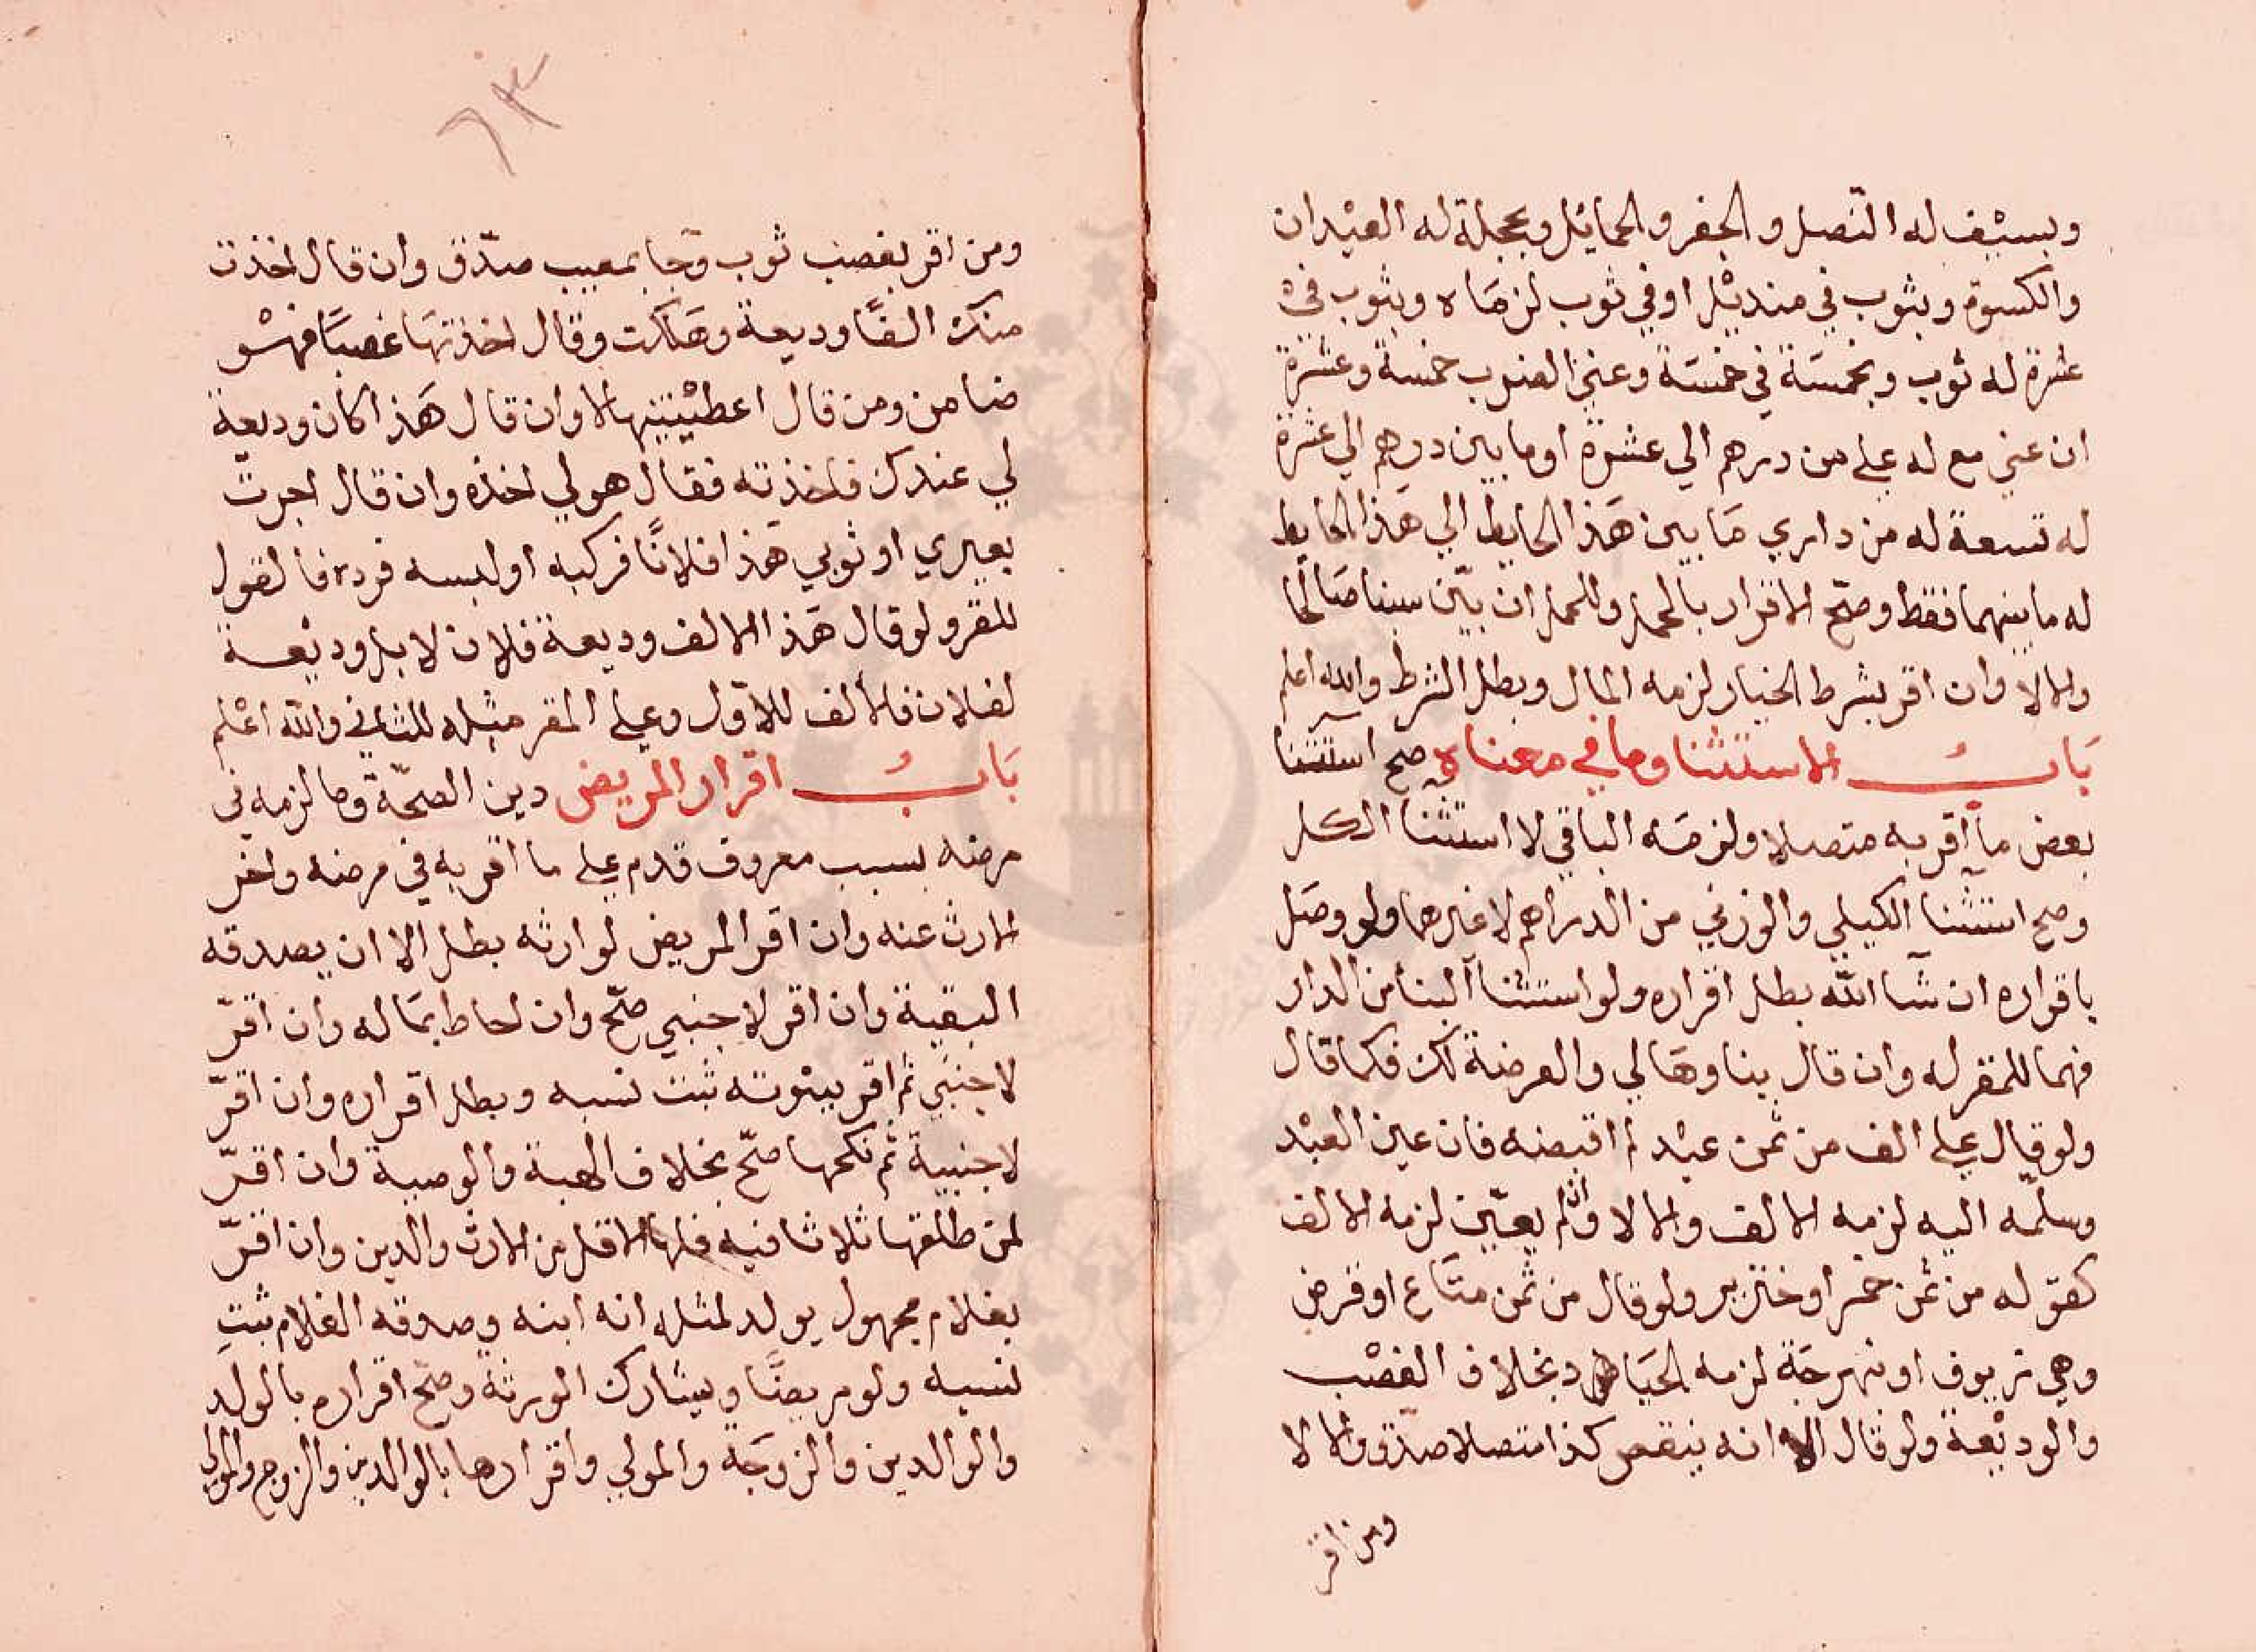 وبسيْف له النّصل والجفر والحمائل وبحجلة له العيْدان
والكسوة وبثوب في منديْل او في ثوب لزماه وبثوب في
عشرة له ثوب وبخمسة في خمسة وعني الضرب خمسة وعشرة
ان عني مع له علي من درهم الي عشرة او ما بين درهم الي عشرة
له تسعة له من داري ما بين هَذا الحايط الي هَذا الحايط
له ما بينهما فقط وصحّ الاقرار بالحمل وللحمل ان بيّن سببا صَالحا
والا لا وان اقر بشرط الخيار لزمه المال وبطل الشرط والله اعلم
بَابُ الاستثنا وما في معناه صح استثنا
بعض ما اقر به متصلا ولزمَه الباقي لا استثنا الكل
وصح استثنا الكيلي والوزني من الدراهم لا غيرهما ولو وصَل
باقراره ان شا الله بطل اقراره ولو استثنا البنا من الدار
فهما للمقر له وان قال بناوهَا لي والعرضة لك فكما قال
ولو قال علي الف من ثمن عبد لم اقبضه فان عين العبْد
وسلّمه اليه لزمه الالف والا لا وان لم يعيّن لزمه الالف
كقوله من ثمن خمر او خنزير ولو قال من ثمن متَاع او قرض
وهي زيوف او نبهرجَة لزمه الجيَاد بخلاف الغصْب
والوديْعة ولو قال الا انه ينقص كذا متصلا صدّق والا لا
ومن اقر
٦٣
ومن اقر بغصب ثوب وجا بمعيب صدّق وان قال اخذت
منك الفًا وديعة وهَلكت وقال اخذتهَا غصبًا فهْو
ضامن ومن قال اعطيْتنيها لا وان قال هَذا كان وديعة
لي عندك فاخذته فقال هو لي اخذه وان قال اجرتّ
بعيري او ثوبي هَذا فلانًا فركبه او لبسه فرده فالقول
للمقر ولو قال هَذا الالف وديعة فلان لا بل وديْعة
لفلان فالالف للاوّل وعلي المقر مثله للثاني والله اعْلم
بَابُ اقرار المريض دين الصحّة وما لزمه في
مرضه بسبب معروف قدم علي ما اقر به في مرضه واخر
الارث عنه وان اقر المريض لوارثه بطل الا ان يصدقه
البقية وان اقر لاجنبي صحّ وان احاط بمَاله وان اقرّ
لاجنبي ثم اقر ببنْوته ثبت نسبه وبطل اقراره وان اقرّ
لاجنبية ثم نكحها صحّ بخلاف الهبة والوصية وان اقرّ
لمن طلقها ثلاثا فيه فلها الاقل من الارث والدين وان اقرّ
بغلام مجهول يولد لمثله انه ابنه وصدقه الغلام ثبت
نسبه ولو مريضًا ويشارك الورثة وصحّ اقراره بالولد
والوالدين والزوجَة والمولي واقرارها بالوالدين والزوج والمولي